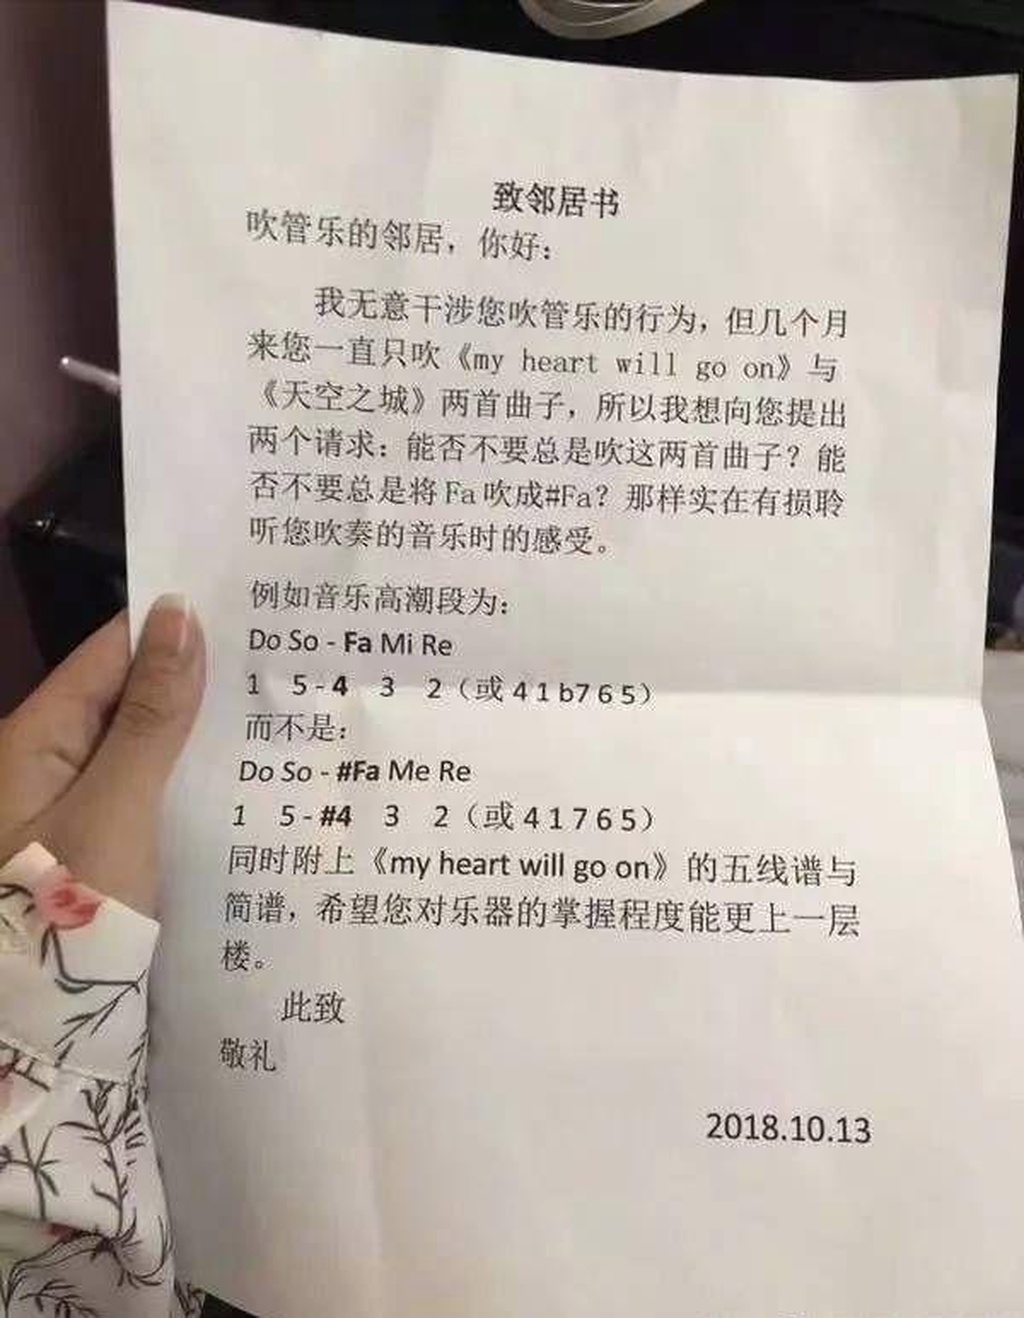 致邻居书
吹管乐的邻居，你好：
我无意干涉您吹管乐的行为，但几个月
来您一直只吹《my heart will go on》与
《天空之城》两首曲子，所以我想向您提出
两个请求：能否不要总是吹这两首曲子？能
否不要总是将Fa吹成#Fa？那样实在有损聆
听您吹奏的音乐时的感受。
例如音乐高潮段为：
Do So - Fa Mi Re
1 5 - 4 3 2（或 4 1 b7 6 5）
而不是：
Do So - #Fa Me Re
1 5 - #4 3 2（或 4 1 7 6 5）
同时附上《my heart will go on》的五线谱与
简谱，希望您对乐器的掌握程度能更上一层
楼。
此致
敬礼
2018.10.13